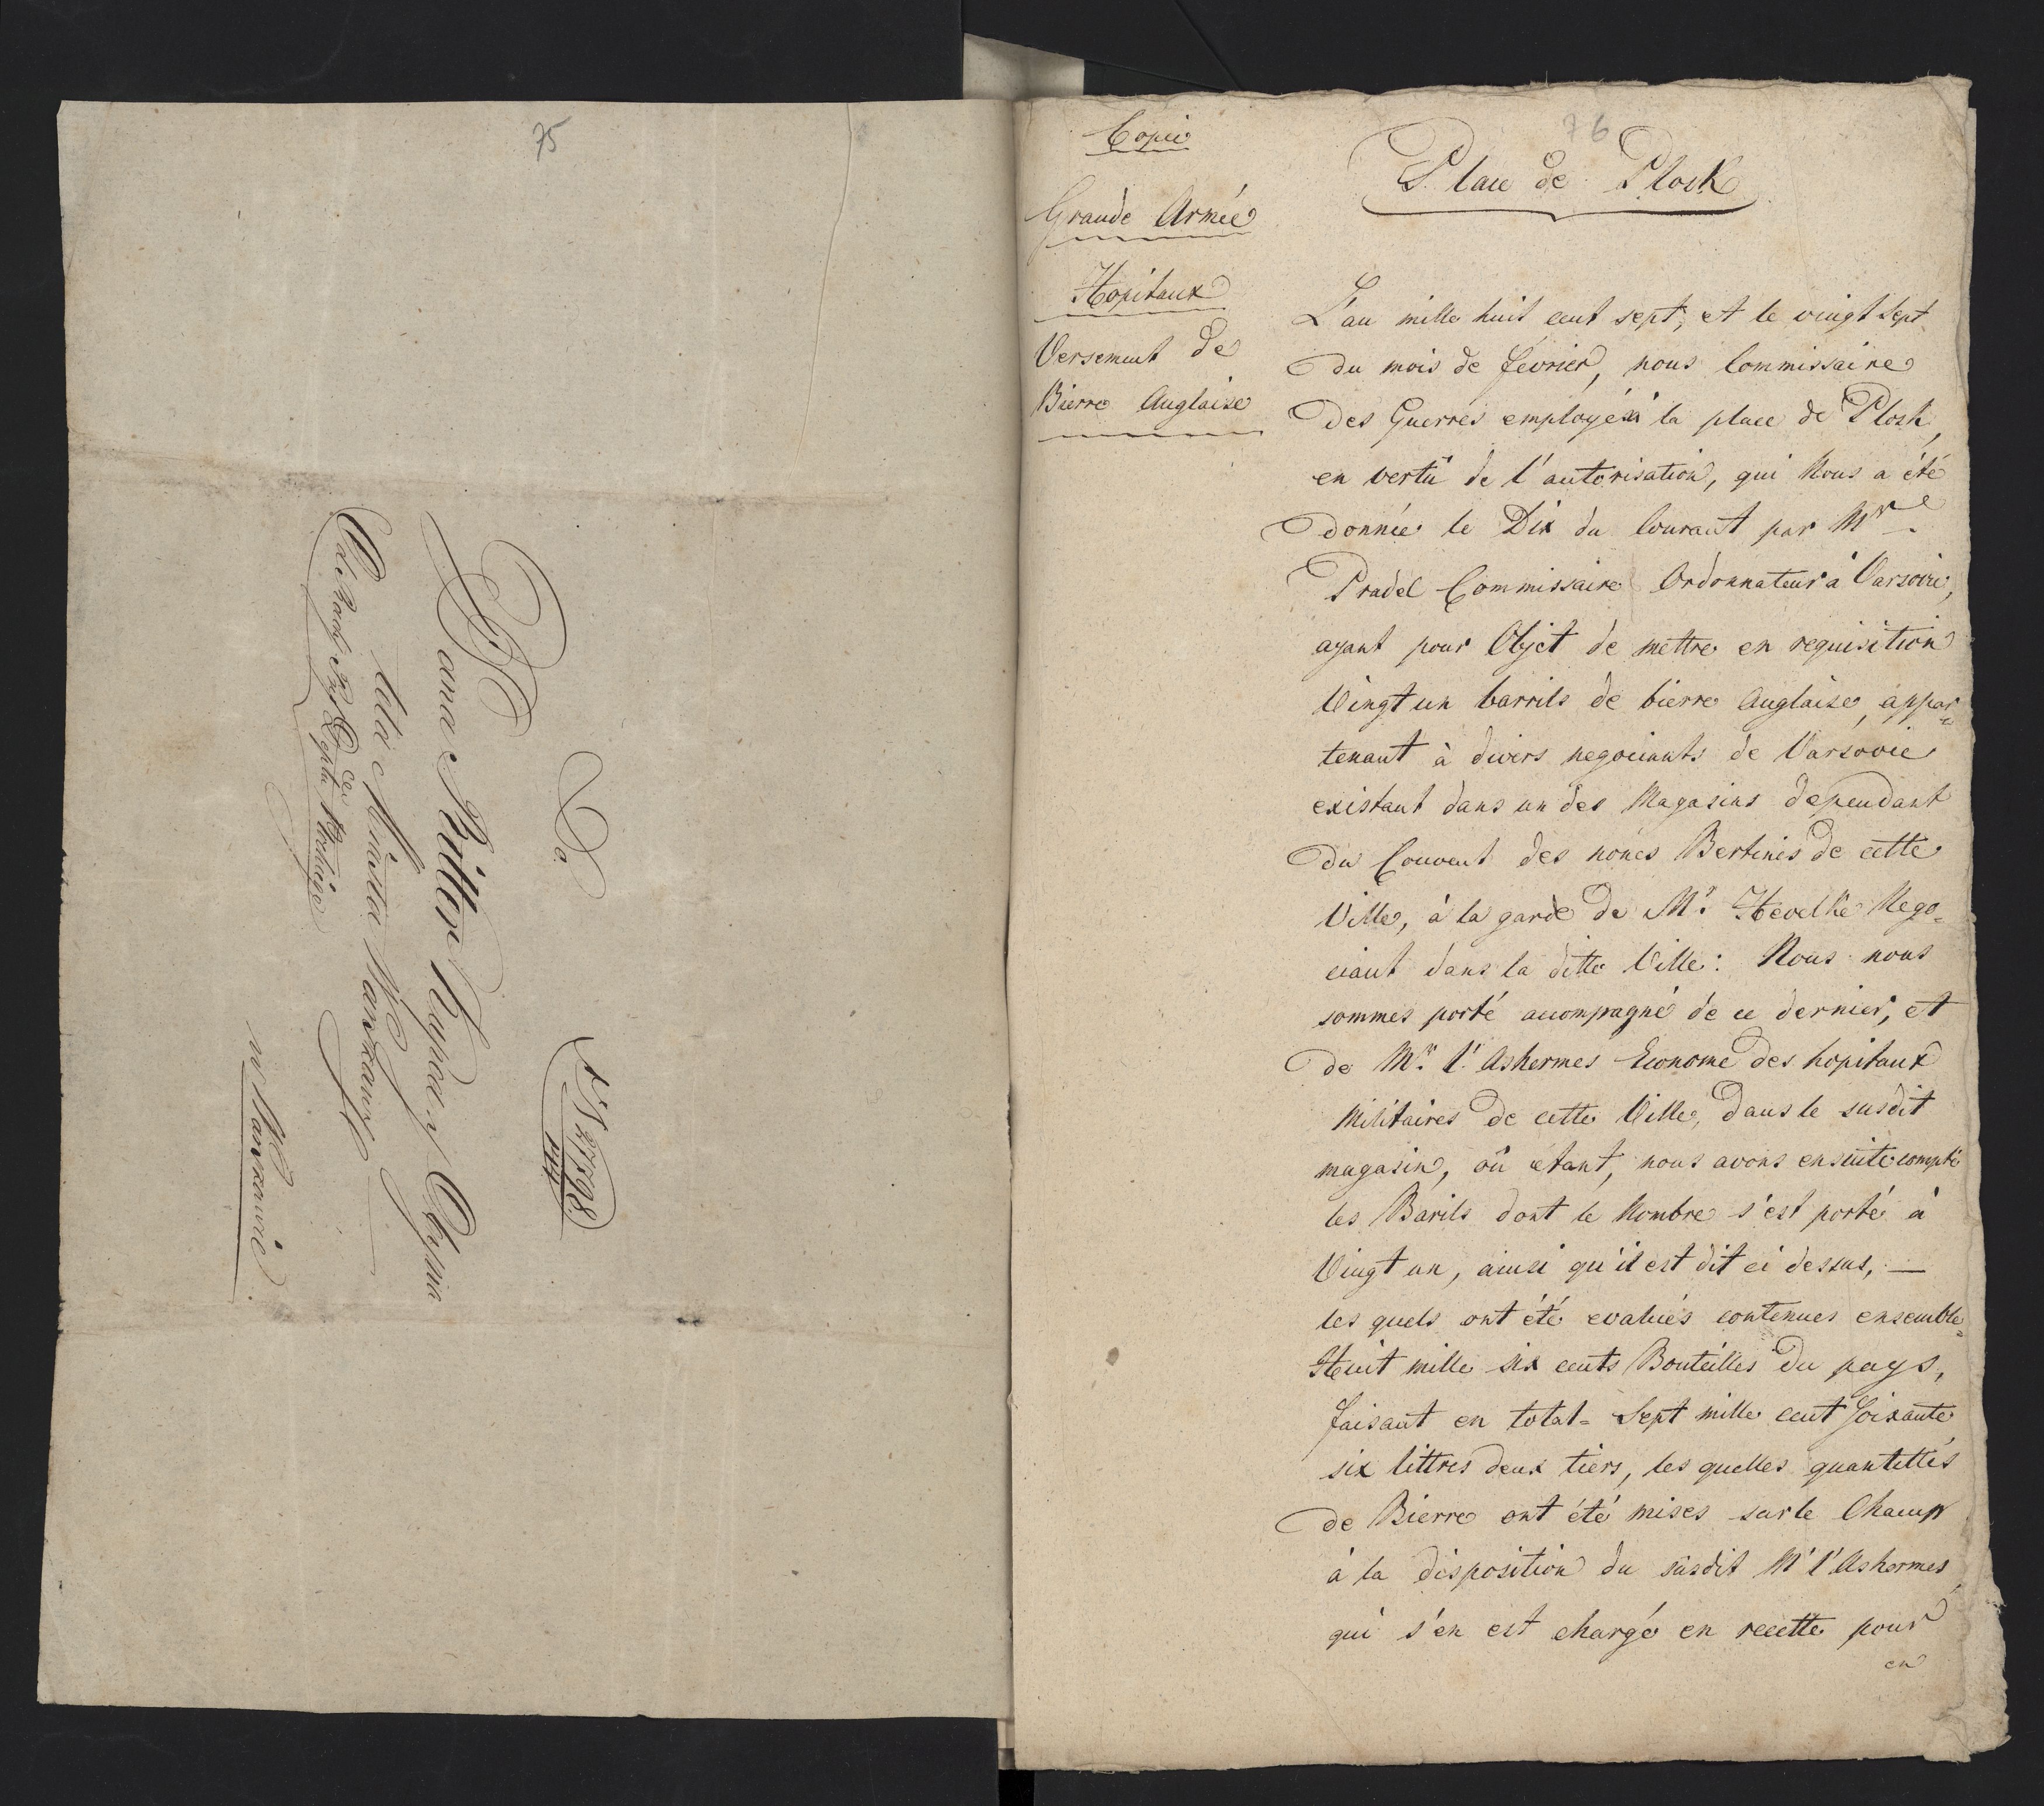 75
Do
N 27898
Pana Killen Raycey i Obywa
tela Miasta Warszawy
w Warszawie
76
Copie
Grande Armée
Hopitaux
Versement de
Bierre Anglaise
Place de Plosk
L'an mille huit cent sept, et le vingt sept
du mois de fevrier, nous Commissaire
des Guerres employé à la place de Plosk,
en vertû de l'autorisation, qui Nous a été
donnée le Dix du Courant par Mr
Pradel Commissaire Ordonnateur à Varsovie,
ayant pour Objet de mettre en requisition
Vingt un barrils de bierre Anglaise, appar=
tenant à divers negociants de Varsovie
existant dans un des Magasins dependant
du Couvent des nones Bertines de cette
Ville, à la garde de Mr. Hevelke Nego=
ciant dans la ditte Ville: Nous nous
sommes porté accompagné de ce dernier, et
de Mr. l'Ashermes Econome des hopitaux
Militaires de cette Ville, dans le susdit
magasin, où étant, nous avons ensuite compté
les Barils dont le Nombre s'est porté à
Vingt un, ainsi qu'il est dit ci dessus, —
les quels ont été evalués contenues ensemble=
Huit mille six cents Bouteilles du pays,
faisant en total= Sept mille cent Soixante
six littres deux tiers, les quelles quantittés
de Bierre ont été mises sur le Champ
à la disposition du susdit Mr l'Ashermes,
qui s'en est chargé en recette pour
en